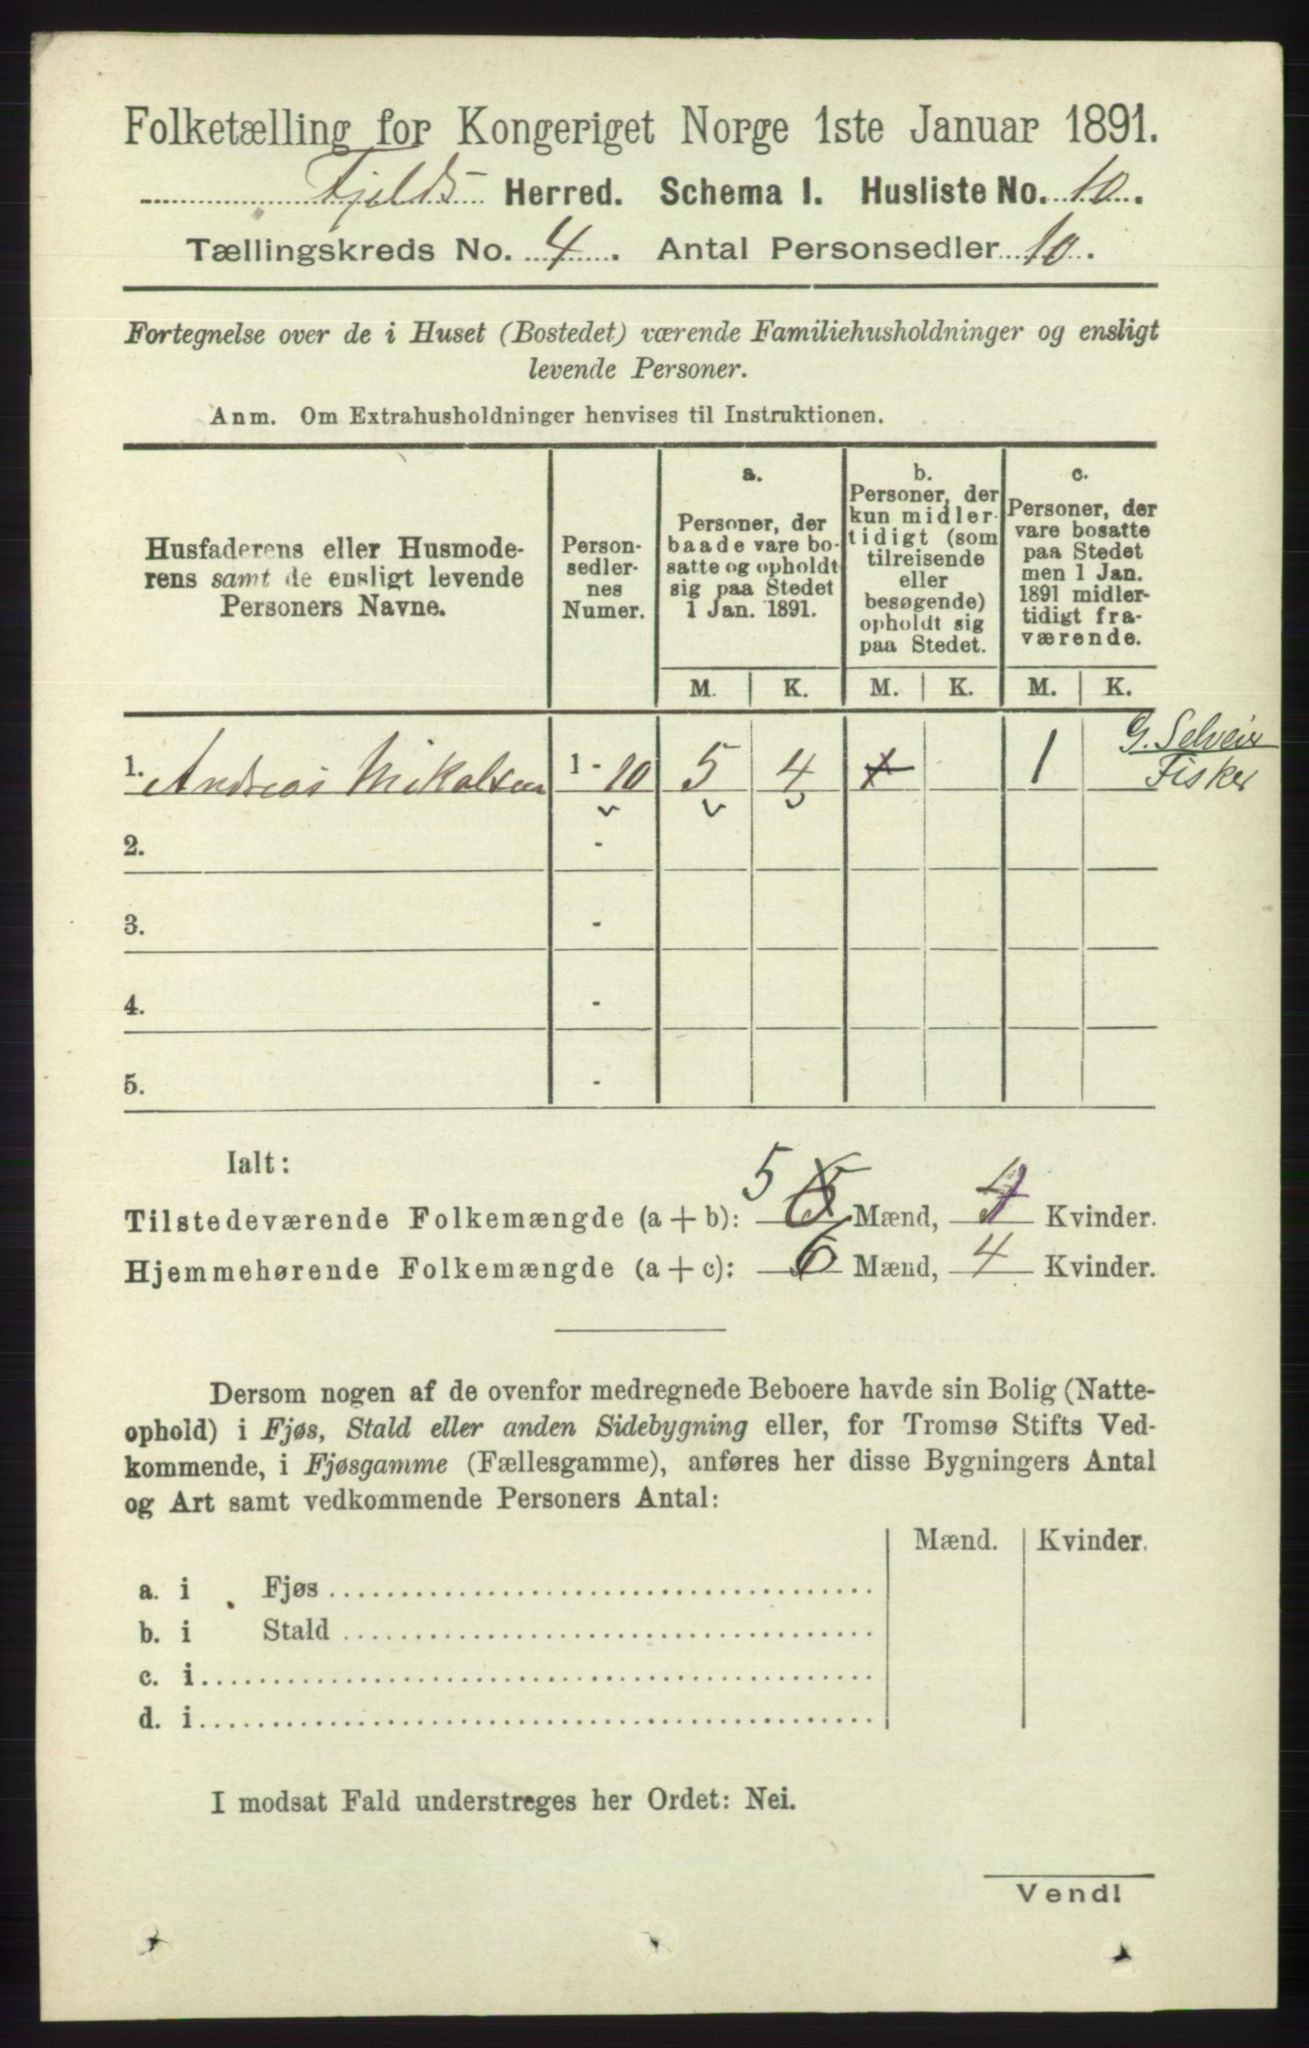 Folketælling for Kongeriget Norge 1ste Januar 1891.
Fjelds Herred. Schema I. Husliste No. 10.
Tællingskreds No. 4. Antal Personsedler 10.
Fortegnelse over de i Huset (Bostedet) værende Familiehusholdninger og ensligt
levende Personer.
Anm. Om Extrahusholdninger henvises til Instruktionen.
Husfaderens eller Husmode-
rens samt de ensligt levende
Personers Navne.
Person-
sedler-
nes
Numer.
a.
Personer, der
baade vare bo-
satte og opholdt
sig paa Stedet
1 Jan. 1891.
b.
Personer, der
kun midler-
tidigt (som
tilreisende
eller
besøgende)
opholdt sig
paa Stedet.
c.
Personer, der
vare bosatte
paa Stedet
men 1 Jan.
1891 midler-
tidigt fra-
værende.
M. K. M. K. M. K.
1. Andreas Mikalsen 1 - 10 5 4 1 1 G. Selveier
Fisker
2. -
3. -
4. -
5. -
Ialt:
Tilstedeværende Folkemængde (a + b): 5 Mænd, 4 Kvinder.
Hjemmehørende Folkemængde (a + c): 6 Mænd, 4 Kvinder.
Dersom nogen af de ovenfor medregnede Beboere havde sin Bolig (Natte-
ophold) i Fjøs, Stald eller anden Sidebygning eller, for Tromsø Stifts Ved-
kommende, i Fjøsgamme (Fællesgamme), anføres her disse Bygningers Antal
og Art samt vedkommende Personers Antal:
Mænd. Kvinder.
a. i Fjøs
b. i Stald
c. i
d. i
I modsat Fald understreges her Ordet: Nei.
Vend!